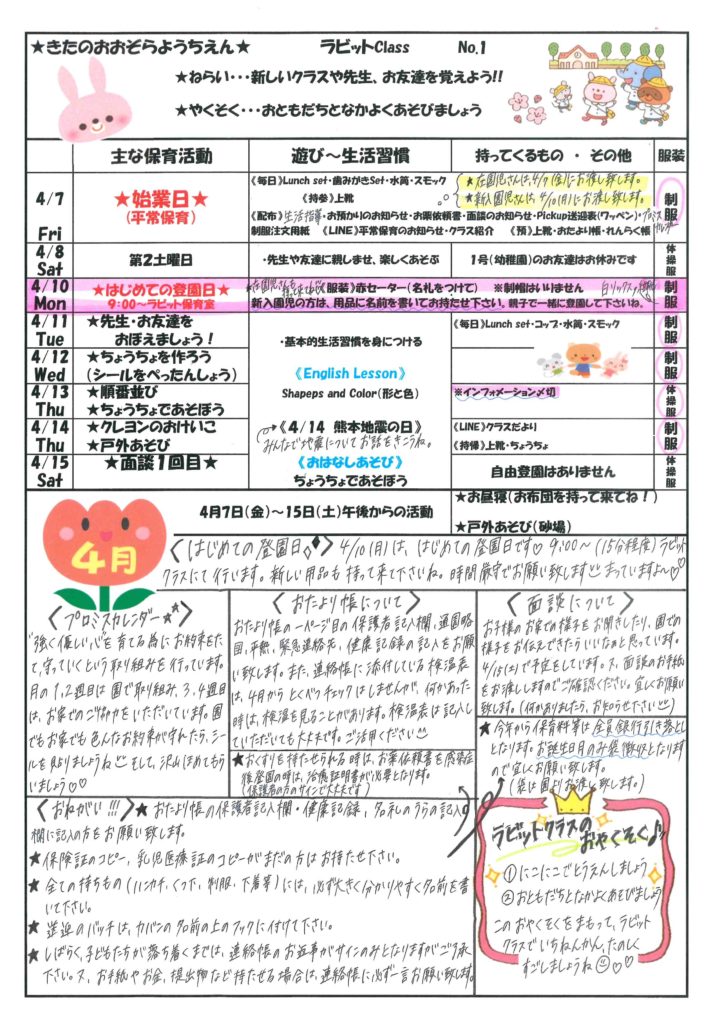 ★きたのおおぞらようちえん★ ラビットClass No.1
★ねらい・・・新しいクラスや先生、お友達を覚えよう!!
★やくそく・・・おともだちとなかよくあそびましょう
主な保育活動 遊び～生活習慣 持ってくるもの ・ その他 服装
4/7 Fri
★始業日★
(平常保育)
《毎日》Lunch set・歯みがきSet・水筒・スモック
《持参》上靴
★在園児さんは、4/7(金)にお渡し致します。
★新入園児さんは、4/10(月)にお渡し致します。
《配布》生活指導・お預かりのお知らせ・お薬依頼書・面談のお知らせ・Pickup送迎表(ワッペン)・プロミスカレンダー
制服注文用紙 《LINE》平常保育のお知らせ・クラス紹介 《預》上靴・おたより帳・れんらく帳
制服
4/8 Sat
第2土曜日
・先生や友達に親しませ、楽しくあそぶ
1号(幼稚園)のお友達はお休みです
体操服
4/10 Mon
★はじめての登園日★
9:00～ラビット保育室
服装》赤セーター(名札をつけて) ※制帽はいりません
新入園児の方は、用品に名前を書いてお持たせ下さい。親子で一緒に登園して下さいね。
制服
4/11 Tue
★先生・お友達を
おぼえましょう!
・基本的生活習慣を身につける
《毎日》Lunch set・コップ・水筒・スモック
制服
4/12 Wed
★ちょうちょを作ろう
(シールをぺったんしょう)
《English Lesson》
制服
4/13 Thu
★順番並び
★ちょうちょであそぼう
Shapeps and Color(形と色)
※インフォメーション〆切
体操服
4/14 Thu
★クレヨンのおけいこ
★戸外あそび
《4/14 熊本地震の日》
みんなで地震についてお話をきこうね。
《LINE》クラスだより
《持帰》上靴・ちょうちょ
制服
4/15 Sat
★面談1回目★
《おはなしあそび》
ちょうちょであそぼう
自由登園はありません
体操服
4月7日(金)～15日(土)午後からの活動
★お昼寝(お布団を持って来てね!)
★戸外あそび(砂場)
4月
〈はじめての登園日〉 4/10(月)は、はじめての登園日です♡ 9:00～(15分程度)ラビット
クラスにて行います。新しい用品も持って来て下さいね。時間厳守でお願い致します まっていますよ～♡
〈プロミスカレンダー★〉
"強く優しい心"を育てる為にお約束をたて、
守っていくという取り組みを行っています。
月の1,2週目は園で取り組み、3,4週目
は、お家でのご協力をいただいています。園
でもお家でも色んなお約束が守れたら、シー
ルを貼りましょうね そして、沢山ほめてもら
いましょう♡♡
〈おたより帳について〉
おたより帳の1ページ目の保護者記入欄、通園略
図、平熱、緊急連絡先、健康記録の記入をお願
い致します。また、連絡帳に添付している検温表
は、4月からとくべつチェックはしませんが、何かあった
時は、検温を見ることがあります。検温表は記入し
ていただいても大丈夫です。ご活用ください
★おくすりを持たせられる時は、お薬依頼書を感染症
後登園の時は、治癒証明書が必要となります。
(保護者の方のサインで大丈夫です)
〈面談について〉
お子様のお家での様子をお聞きしたり、園での
様子をお伝えできたらいいなぁと思っています。
4/15(土)で予定をしています。又、面談のお手紙
をお渡ししますのでご確認ください。宜しくお願い
致します。(何かありましたら、お知らせ下さい)
★今年から保育料等は全員銀行引き落とし
となります。お誕生日のみ袋徴収となります
ので宜しくお願い致します。
(袋は園よりお渡し致します。)
〈おねがい!!!〉★おたより帳の保護者記入欄・健康記録、名札のうらの記入
欄に記入の方をお願い致します。
★保険証のコピー、乳児医療証のコピーがまだの方はお持たせ下さい。
★全ての持ちもの(ハンカチ、くつ下、制服、下着等)には、必ず大きく分かりやすく名前を書
いて下さい。
★送迎のバッチは、カバンの名前の上のフックに付けて下さい。
★しばらく、子どもたちが落ち着くまでは、連絡帳のお返事がサインのみとなりますがご了承
下さい。又、お手紙やお金、提出物など持たせる場合は、連絡帳に必ず一言お願い致します。
ラビットクラスの
おやくそく♪
①にこにこでとうえんしましょう
②おともだちとなかよくあそびましょう
このおやくそくをまもって、ラビット
クラスでいちねんかん、たのしく
すごしましょうね♡♡